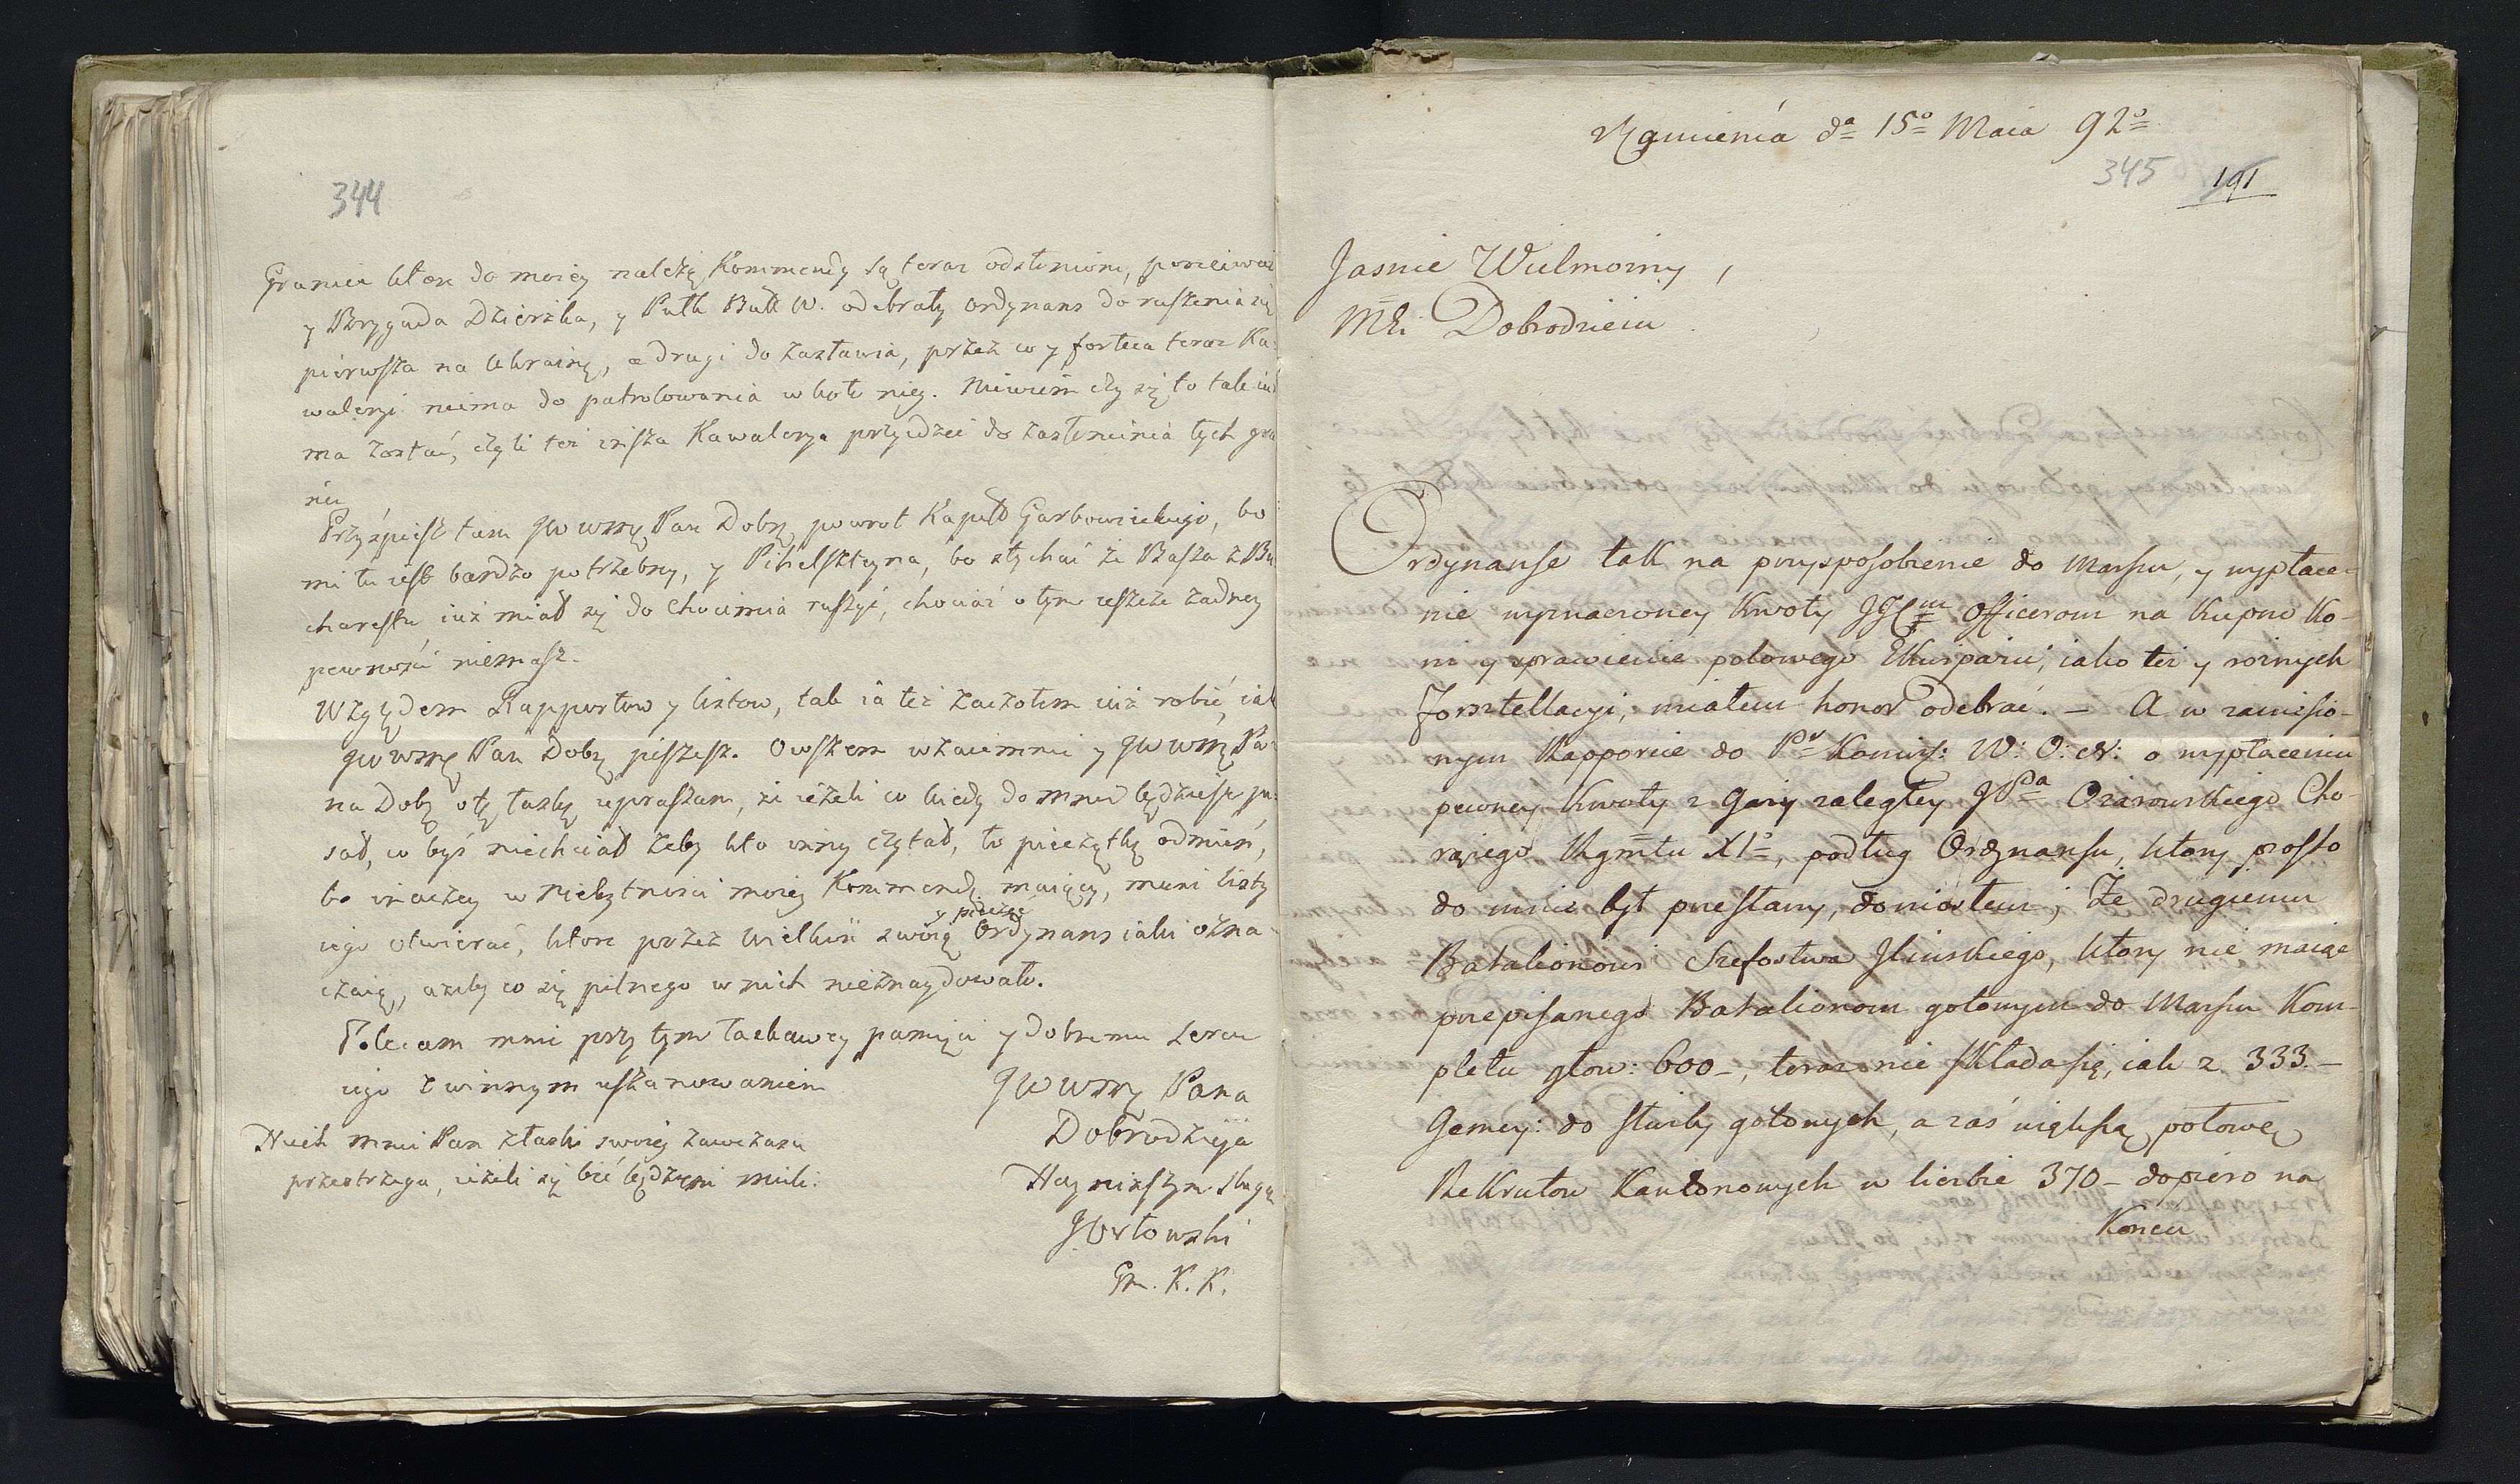 344
Granice ktore do moiey należą Kommendy są teraz odsłonione, ponieważ
y Brygada Dzierzka, y Pułk Buł: W. odebrały ordynans do ruszenia się
pierwsza na Ukrainę, a drugi do Zasławia, przez co y forteca teraz Ka-
waleryi niema do patrolowania w koło niey. Niewiem czy się to tak iuż
ma zostać, czyli też insza Kawalerya przyidzie do zasłonienia tych gra
nic
Przyśpiesz tam JW WMy Pan Dobry powrot Kapit: Garbowieckiego, bo
mi tu iest bardzo potrzebny, y Pihelsztyna, bo słychać że Basza z Bu
charesztu iuż miał się do Chocimia ruszyć, chociaż o tym ieszcze żadney
pewności niemasz.
Względem Rapportow y listow, tak ia też zacząłem iuż robić, iak
JW WMy Pan Dobry piszesz. Owszem wzaiemnie y JW WMy Pa-
na Dobr: o tę łaskę upraszam, że ieżeli co kiedy do mnie będziesz pi-
sał, co byś niechciał żeby kto inny czytał, to pieczątkę odmień,
bo inaczey w niebytności moiey Kommendę maiący, musi listy
iego otwierać, ktore przez wielkość swoię y pieczęć Ordynans iaki ozna-
czaią, ażeby co się pilnego w nich nieznaydowało.
Polecam mnie przy tym łaskawey pamięci y dobremu sercu
iego z winnym uszanowaniem
JW WMy Pana
Dobrodzieja
Niech mnie Pan z łaski swoiey zawczasu
przestrzega, ieżeli się bić będziemy mieli.
Nayniższym sługą
J Orłowski
Gm. K. K.
z Kamienia da 15o Maia 92o
345 191
Jasnie Wielmożny,
Mći Dobrodzieiu
Ordynanse tak na przysposobienie do Marszu, y wypłace-
nie wyznaczoney kwoty JJPm Officerom na kupno Ko-
ni y sprawienie polowego Ekwipażu, iako też y roznych
Forsztellacyi, miałem honor odebrać. – A w zaniesio-
nym Rapporcie do Pr Komiss: W: O: N: o wypłaceniu
pewney kwoty z Gaży zaległey JPa Ożarowskiego Cho-
rążego Rgmtu XIo, podług Ordynansu, ktory prosto
do mnie był przesłany, doniosłem; Że drugiemu
Batalionowi Szefostwa Ilinskiego, ktory nie maiąc
przepisanego Batalionom gotowym do Marszu Kom-
pletu głow: 600 –, teraz nie składa się, iak z 333. –
Gemey: do służby gotowych, a zaś większą połowę
Rekrutow Kantonowych w liczbie 370 – dopiero na
Koncu